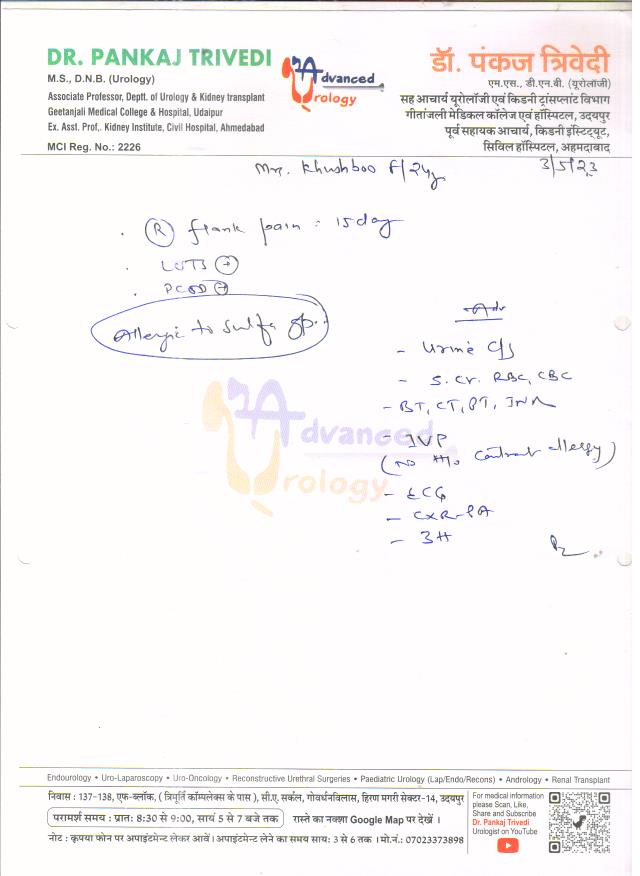 DR. PANKAJ TRIVEDI
M.S., D.N.B. (Urology)
Associate Professor, Deptt. of Urology & Kidney transplant
Geetanjali Medical College & Hospital, Udaipur
Ex. Asst. Prof., Kidney Institute, Civil Hospital, Ahmedabad
MCI Reg. No.: 2226
Advanced
Urology
डॉ. पंकज त्रिवेदी
एम.एस., डी.एन.बी. (यूरोलॉजी)
सह आचार्य यूरोलॉजी एवं किडनी ट्रांसप्लांट विभाग
गीतांजली मेडिकल कॉलेज एवं हॉस्पिटल, उदयपुर
पूर्व सहायक आचार्य, किडनी इंस्टिट्यूट,
सिविल हॉस्पिटल, अहमदाबाद
3/5/23
Khushboo F/24y
(R) flank pain : 15 day
LUTS (+)
PCOD (+)
Allergic to Sulfa gp..
Adv
- Urine C/S
- S. Cr. RBC, CBC
- BT, CT, PT, INR
- IVP
(No H/o Contrast allergy)
- ECG
- CXR-PA
- 3H
Advanced
Urology
Endourology • Uro-Laparoscopy • Uro-Oncology • Reconstructive Urethral Surgeries • Paediatric Urology (Lap/Endo/Recons) • Andrology • Renal Transplant
निवास : 137-138, एफ-ब्लॉक, ( त्रिमूर्ति कॉम्पलेक्स के पास ), सी.ए. सर्कल, गोवर्धनविलास, हिरण मगरी सेक्टर-14, उदयपुर
परामर्श समय : प्रातः 8:30 से 9:00, सायं 5 से 7 बजे तक रास्ते का नक्शा Google Map पर देखें ।
नोट : कृपया फोन पर अपाइंटमेन्ट लेकर आवें। अपाइंटमेन्ट लेने का समय सायं: 3 से 6 तक । मो.नं.: 07023373898
For medical information
please Scan, Like,
Share and Subscribe
Dr. Pankaj Trivedi
Urologist on YouTube